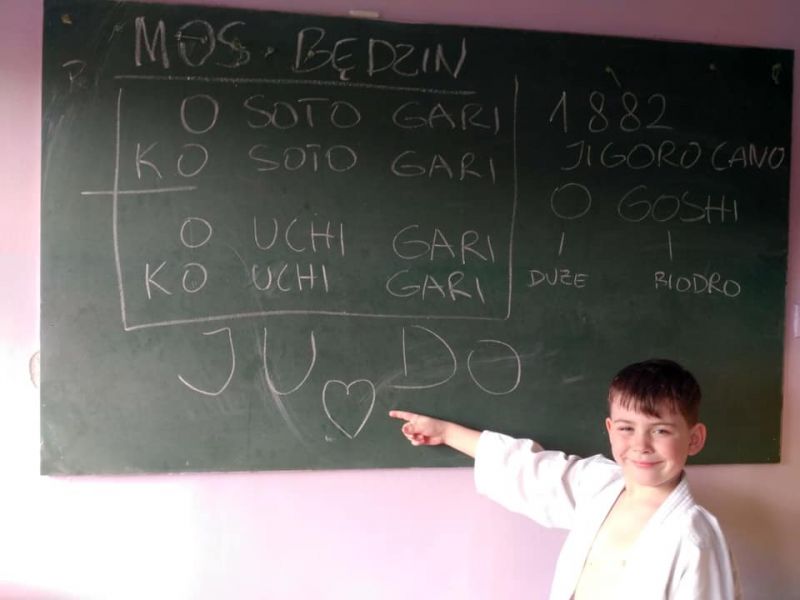 MOS BĘDZIN
O SOTO GARI
KO SOTO GARI
O UCHI GARI
KO UCHI GARI
1882
JIGORO CANO
O GOSHI
DUŻE BIODRO
JU DO